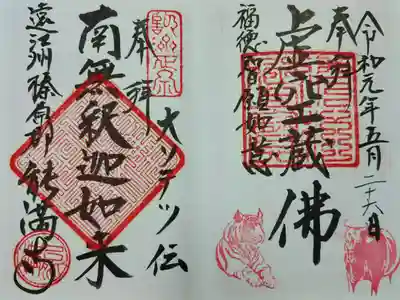 令和元年五月二十六日
奉拝
虚空蔵佛
福徳智願如意
大ソテツ伝
奉拝
南無釋迦如来
遠江州榛原郡 能満寺